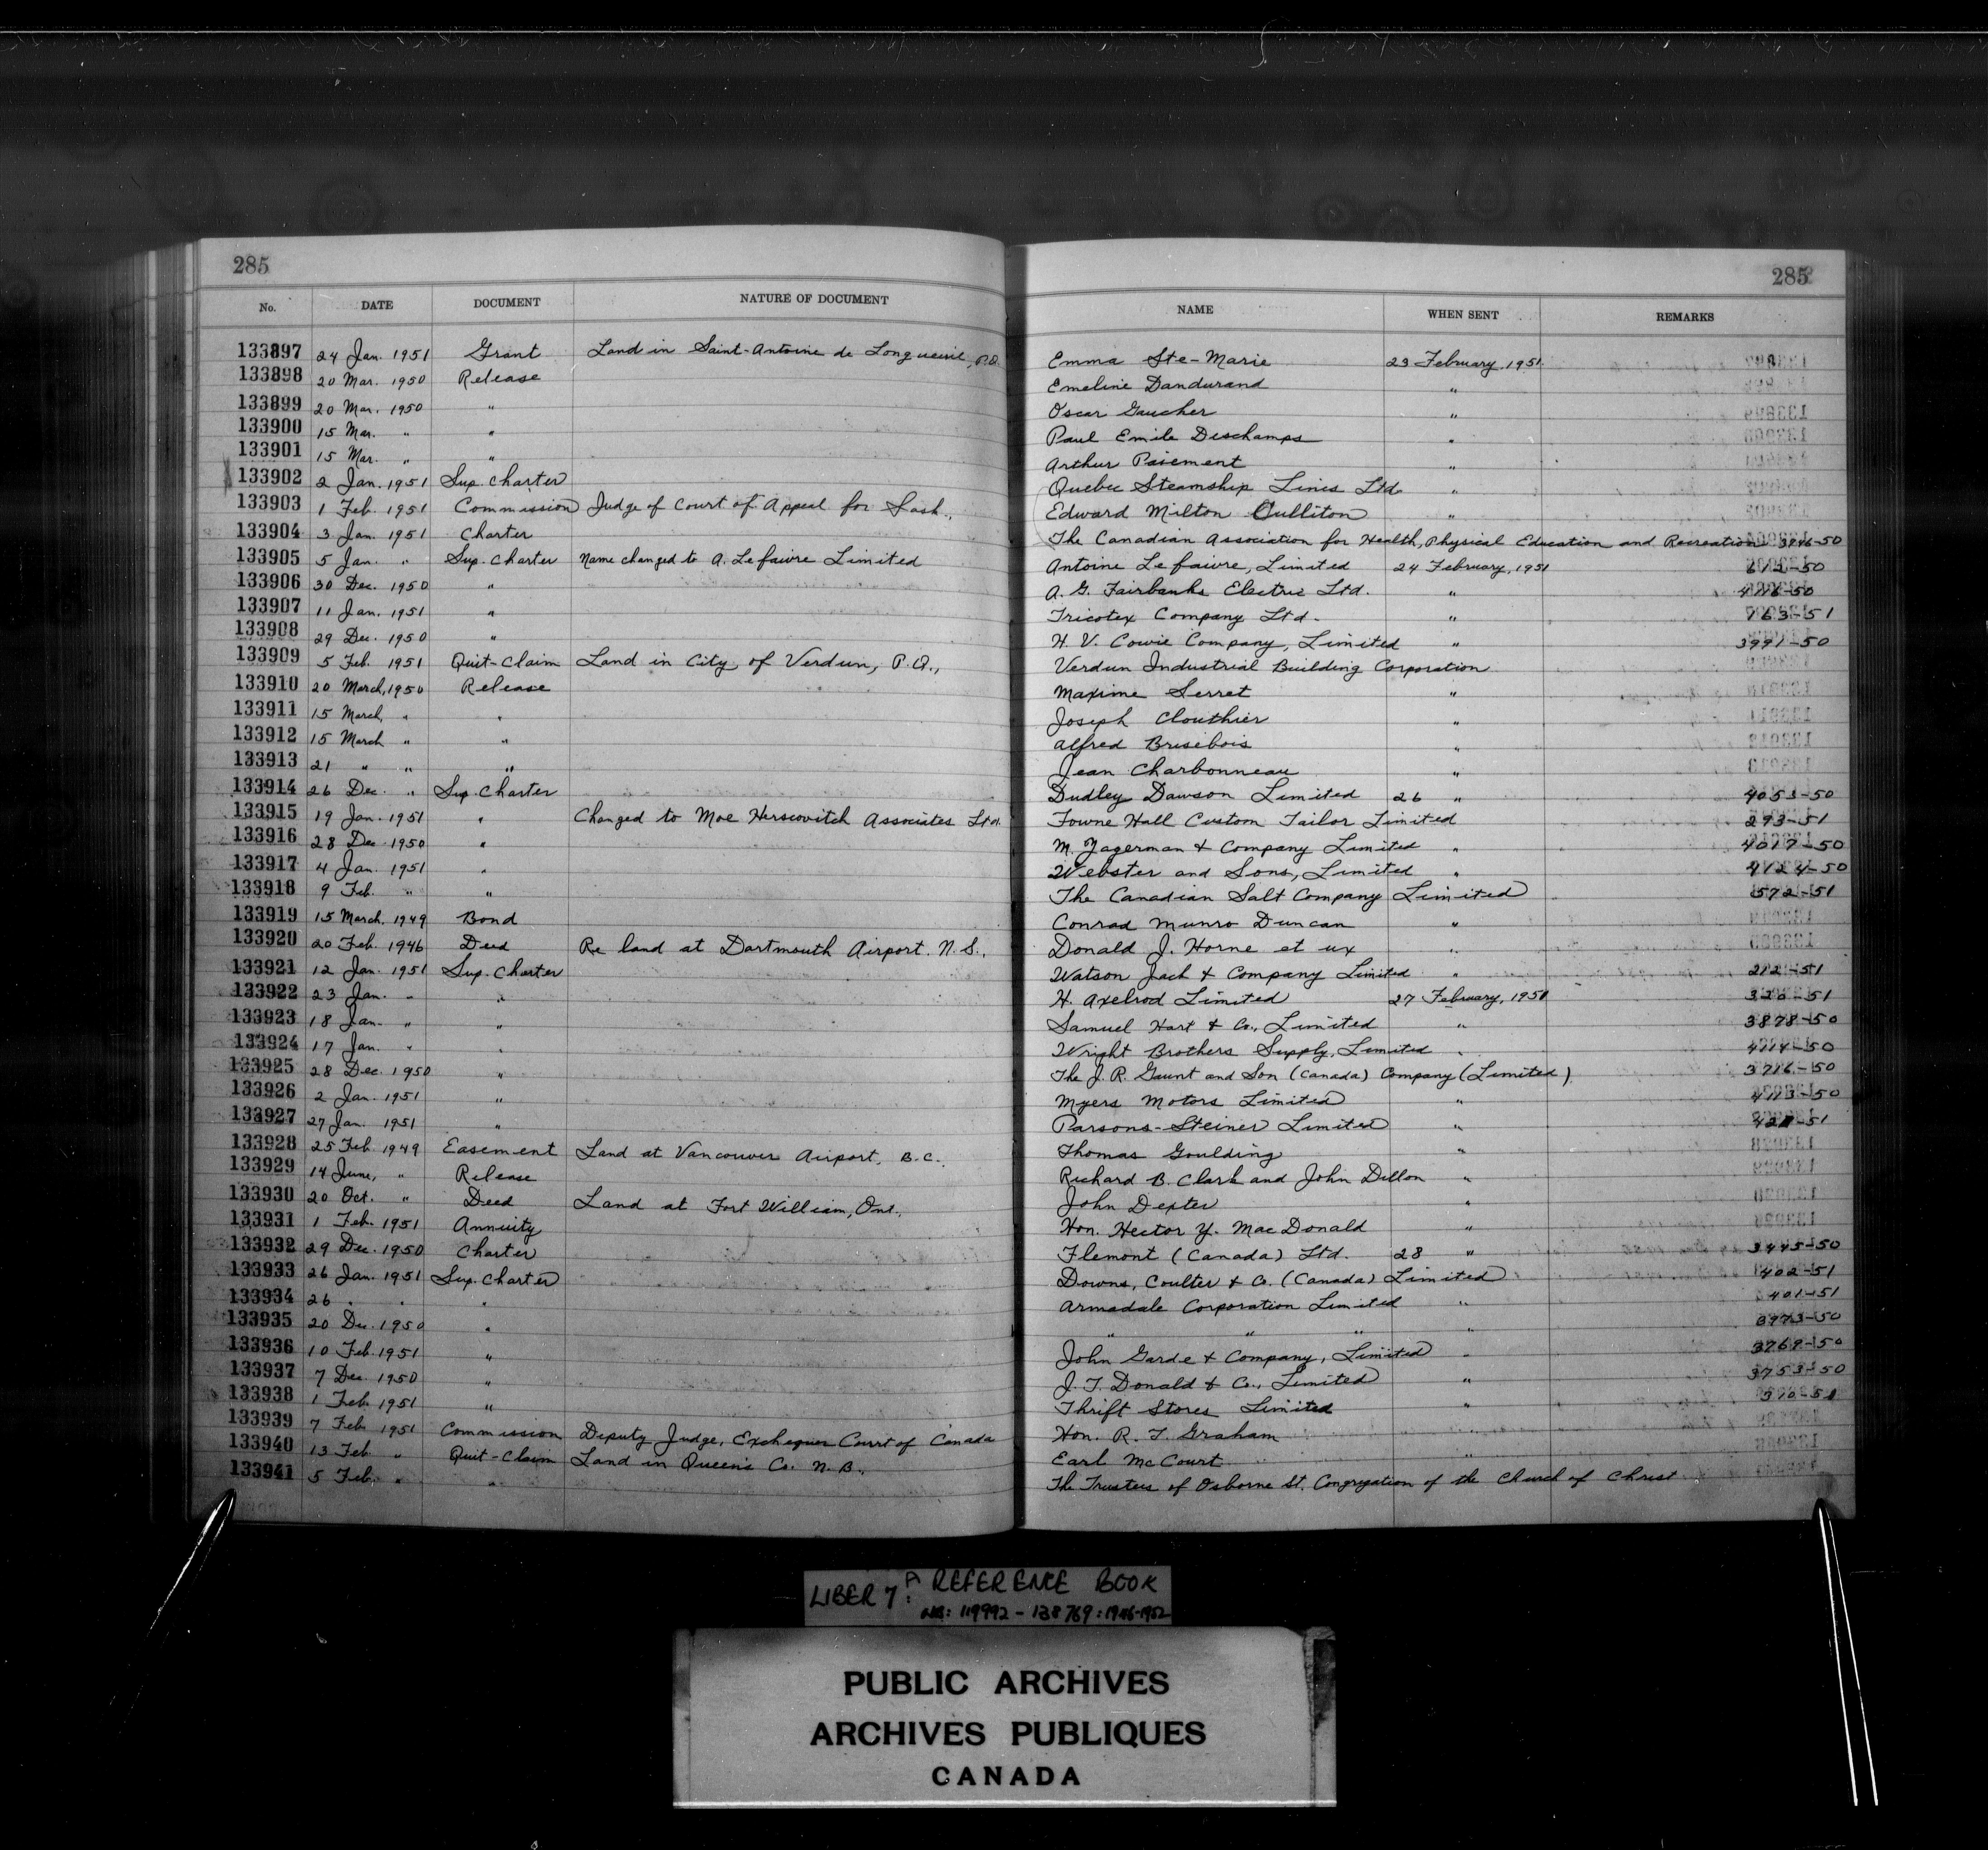 285
285
No. DATE DOCUMENT NATURE OF DOCUMENT NAME WHEN SENT REMARKS
133897 24 Jan. 1951 Grant Land in Saint-Antoine de Longueuil, P.Q. Emma Ste-Marie 23 February, 1951.
133898 20 Mar. 1950 Release Emeline Dandurand "
133899 20 Mar. 1950 " Oscar Gaucher "
133900 15 Mar. " " Paul Emile Deschamps "
133901 15 Mar. " " Arthur Paiement "
133902 2 Jan. 1951 Sup. Charter Quebec Steamship Lines Ltd. "
133903 1 Feb. 1951 Commission Judge of Court of Appeal for Sask., Edward Milton Culliton "
133904 3 Jan. 1951 Charter The Canadian Association for Health, Physical Education and Recreation
133905 5 Jan. " Sup. Charter Name changed to A. Lefaivre Limited Antoine Lefaivre, Limited 24 February, 1951
133906 30 Dec. 1950 " A. G. Fairbanks Electric Ltd. "
133907 11 Jan. 1951 " Tricotex Company Ltd. " 163-51
133908 29 Dec. 1950 " H. V. Cowie Company, Limited " 3991-50
133909 5 Feb. 1951 Quit-Claim Land in City of Verdun, P.Q., Verdun Industrial Building Corporation
133910 20 March, 1950 Release Maxime Serret "
133911 15 March, " " Joseph Clouthier "
133912 15 March " " Alfred Brisebois "
133913 21 " " " Jean Charbonneau "
133914 26 Dec. " Sup. Charter Dudley Dawson Limited 26 " 4053-50
133915 19 Jan. 1951 " Changed to Moe Herscovitch Associates Ltd. Towne Hall Custom Tailor Limited 293-51
133916 28 Dec. 1950 " M. Yagerman & Company Limited " 4017-50
133917 4 Jan. 1951 " Webster and Sons, Limited " 4124-50
133918 9 Feb. " " The Canadian Salt Company Limited 572-51
133919 15 March, 1949 Bond Conrad Munro Duncan "
133920 20 Feb. 1946 Deed Re land at Dartmouth Airport. N.S., Donald J. Horne et ux "
133921 12 Jan. 1951 Sup. Charter Watson Jack & Company Limited " 212-51
133922 23 Jan. " " H. Axelrod Limited 27 February, 1951
133923 18 Jan. " " Samuel Hart & Co., Limited " 3878-50
133924 17 Jan. " " Wright Brothers Supply, Limited " 4114-50
133925 28 Dec. 1950 " The J. R. Gaunt and Son (Canada) Company (Limited) 3716-50
133926 2 Jan. 1951 " Myers Motors Limited " 4113-50
133927 27 Jan. 1951 " Parsons-Steiner Limited "
133928 25 Feb. 1949 Easement Land at Vancouver Airport, B.C. Thomas Goulding "
133929 14 June, " Release Richard B. Clark and John Dillon "
133930 20 Oct. " Deed Land at Fort William, Ont. John Dexter "
133931 1 Feb. 1951 Annuity Hon. Hector Y. MacDonald "
133932 29 Dec. 1950 Charter Flemont (Canada) Ltd. 28 " 3445-50
133933 26 Jan. 1951 Sup. Charter Downs, Coulter & Co. (Canada) Limited 402-51
133934 26 " " " Armadale Corporation Limited " 401-51
133935 20 Dec. 1950 " " " " " 3973-50
133936 10 Feb. 1951 " John Garde & Company, Limited " 3769-50
133937 7 Dec. 1950 " J. T. Donald & Co., Limited " 3753-50
133938 1 Feb. 1951 " Thrift Stores Limited "
133939 7 Feb. 1951 Commission Deputy Judge, Exchequer Court of Canada Hon. R. T. Graham "
133940 13 Feb. " Quit-Claim Land in Queen's Co. N.B., Earl McCourt "
133941 5 Feb. " " The Trustees of Osborne St. Congregation of the Church of Christ
LIBER 7A: REFERENCE BOOK
NOS: 119992 - 138769: 1946-1952
PUBLIC ARCHIVES
ARCHIVES PUBLIQUES
CANADA